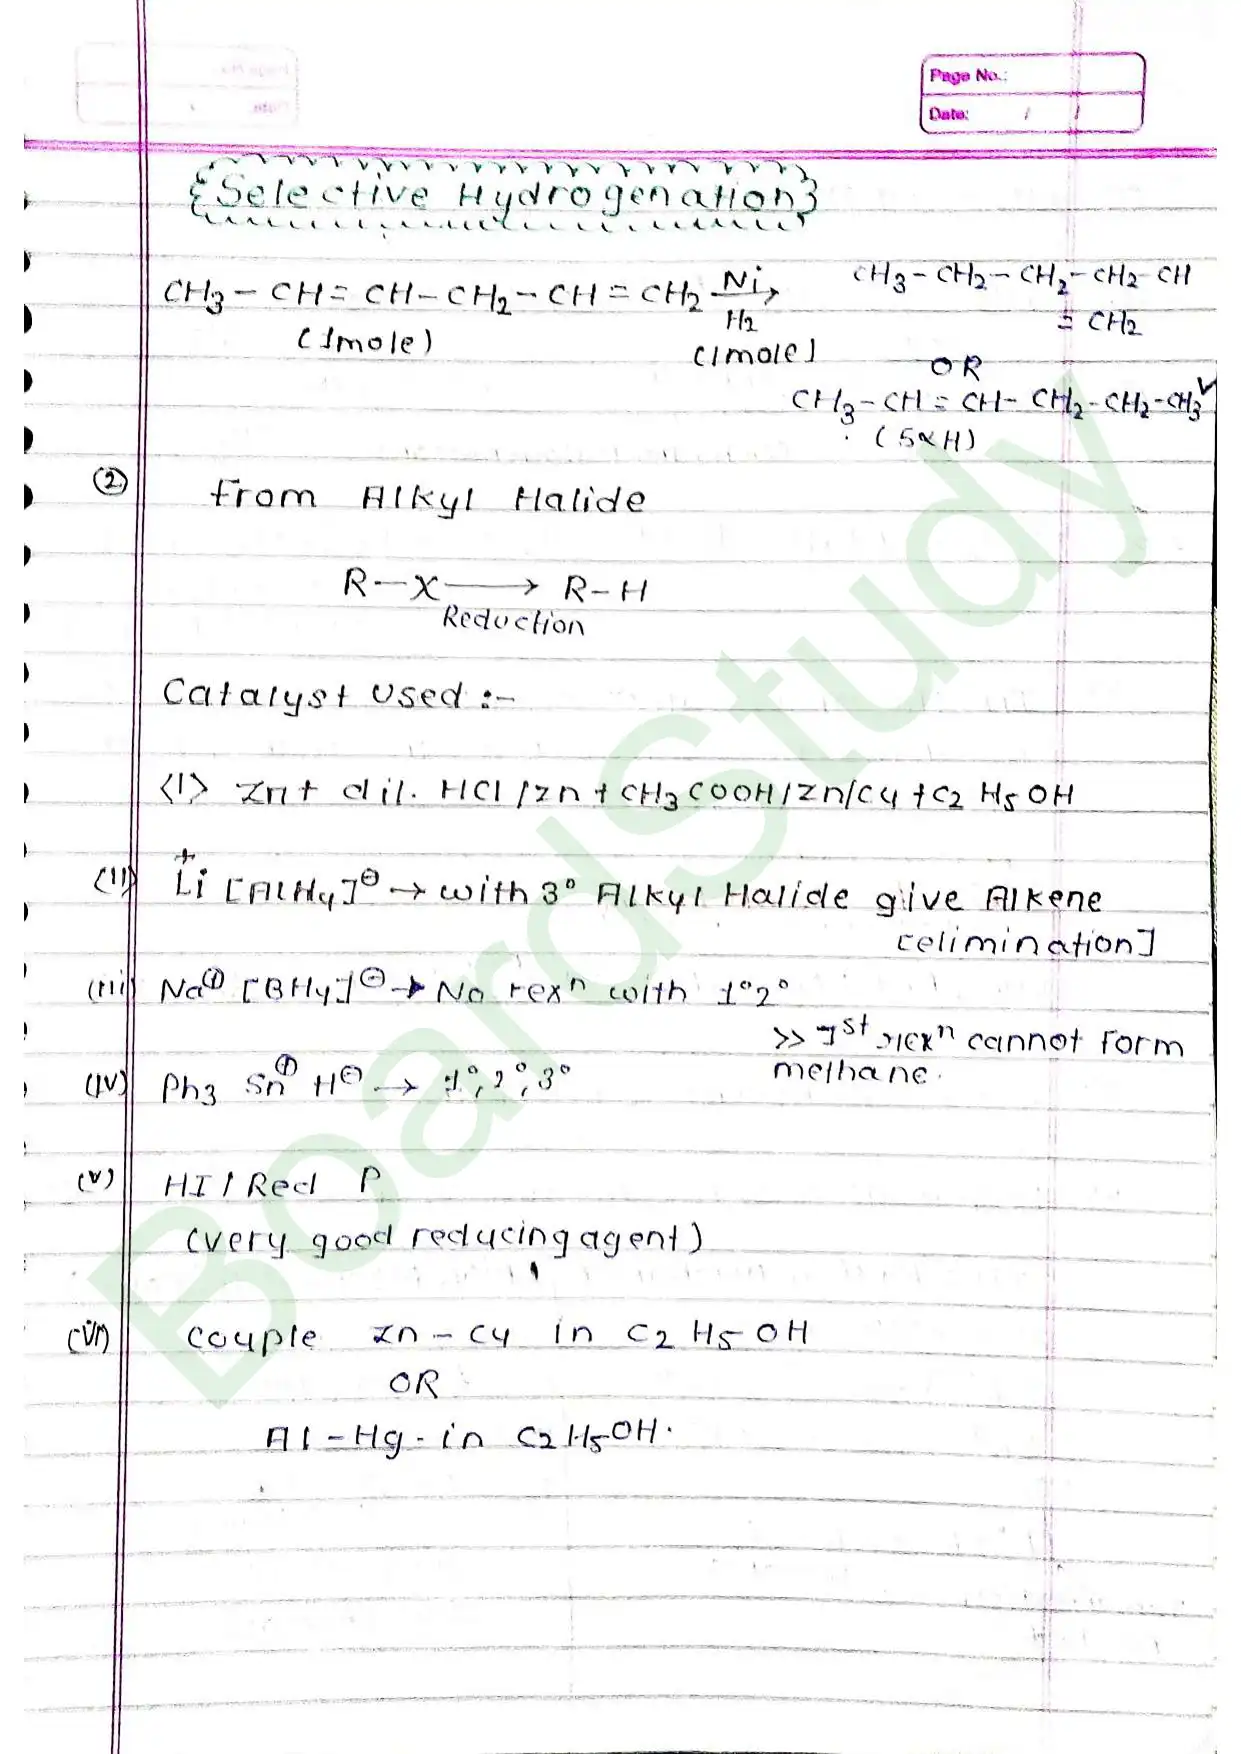 Page No.:
Date: / /
{Selective Hydrogenation}
CH3 – CH = CH – CH2 – CH = CH2 Ni→ CH3 – CH2 – CH2 – CH2 – CH
H2 = CH2
(1mole) (1mole)
OR
CH3 – CH = CH – CH2 – CH2 – CH3 ✓
(5αH)
② From Alkyl Halide
R—X ⟶ R–H
Reduction
Catalyst used :-
<1> Zn + dil. HCl / Zn + CH3COOH / Zn/Cu + C2H5OH
(II) Li+ [AlH4]⊖ → with 3° Alkyl Halide give Alkene
[elimination]
(III) Na⊕ [BH4]⊖ → No rexn with 1°2°
>> Ist rexn cannot form
methane.
(IV) Ph3 Sn⊕ H⊖ → 1°, 2°, 3°
(V) HI / Red P
(very good reducing agent)
(VI) Couple Zn – Cu in C2H5OH
OR
Al – Hg - in C2H5OH.
BoardStudy